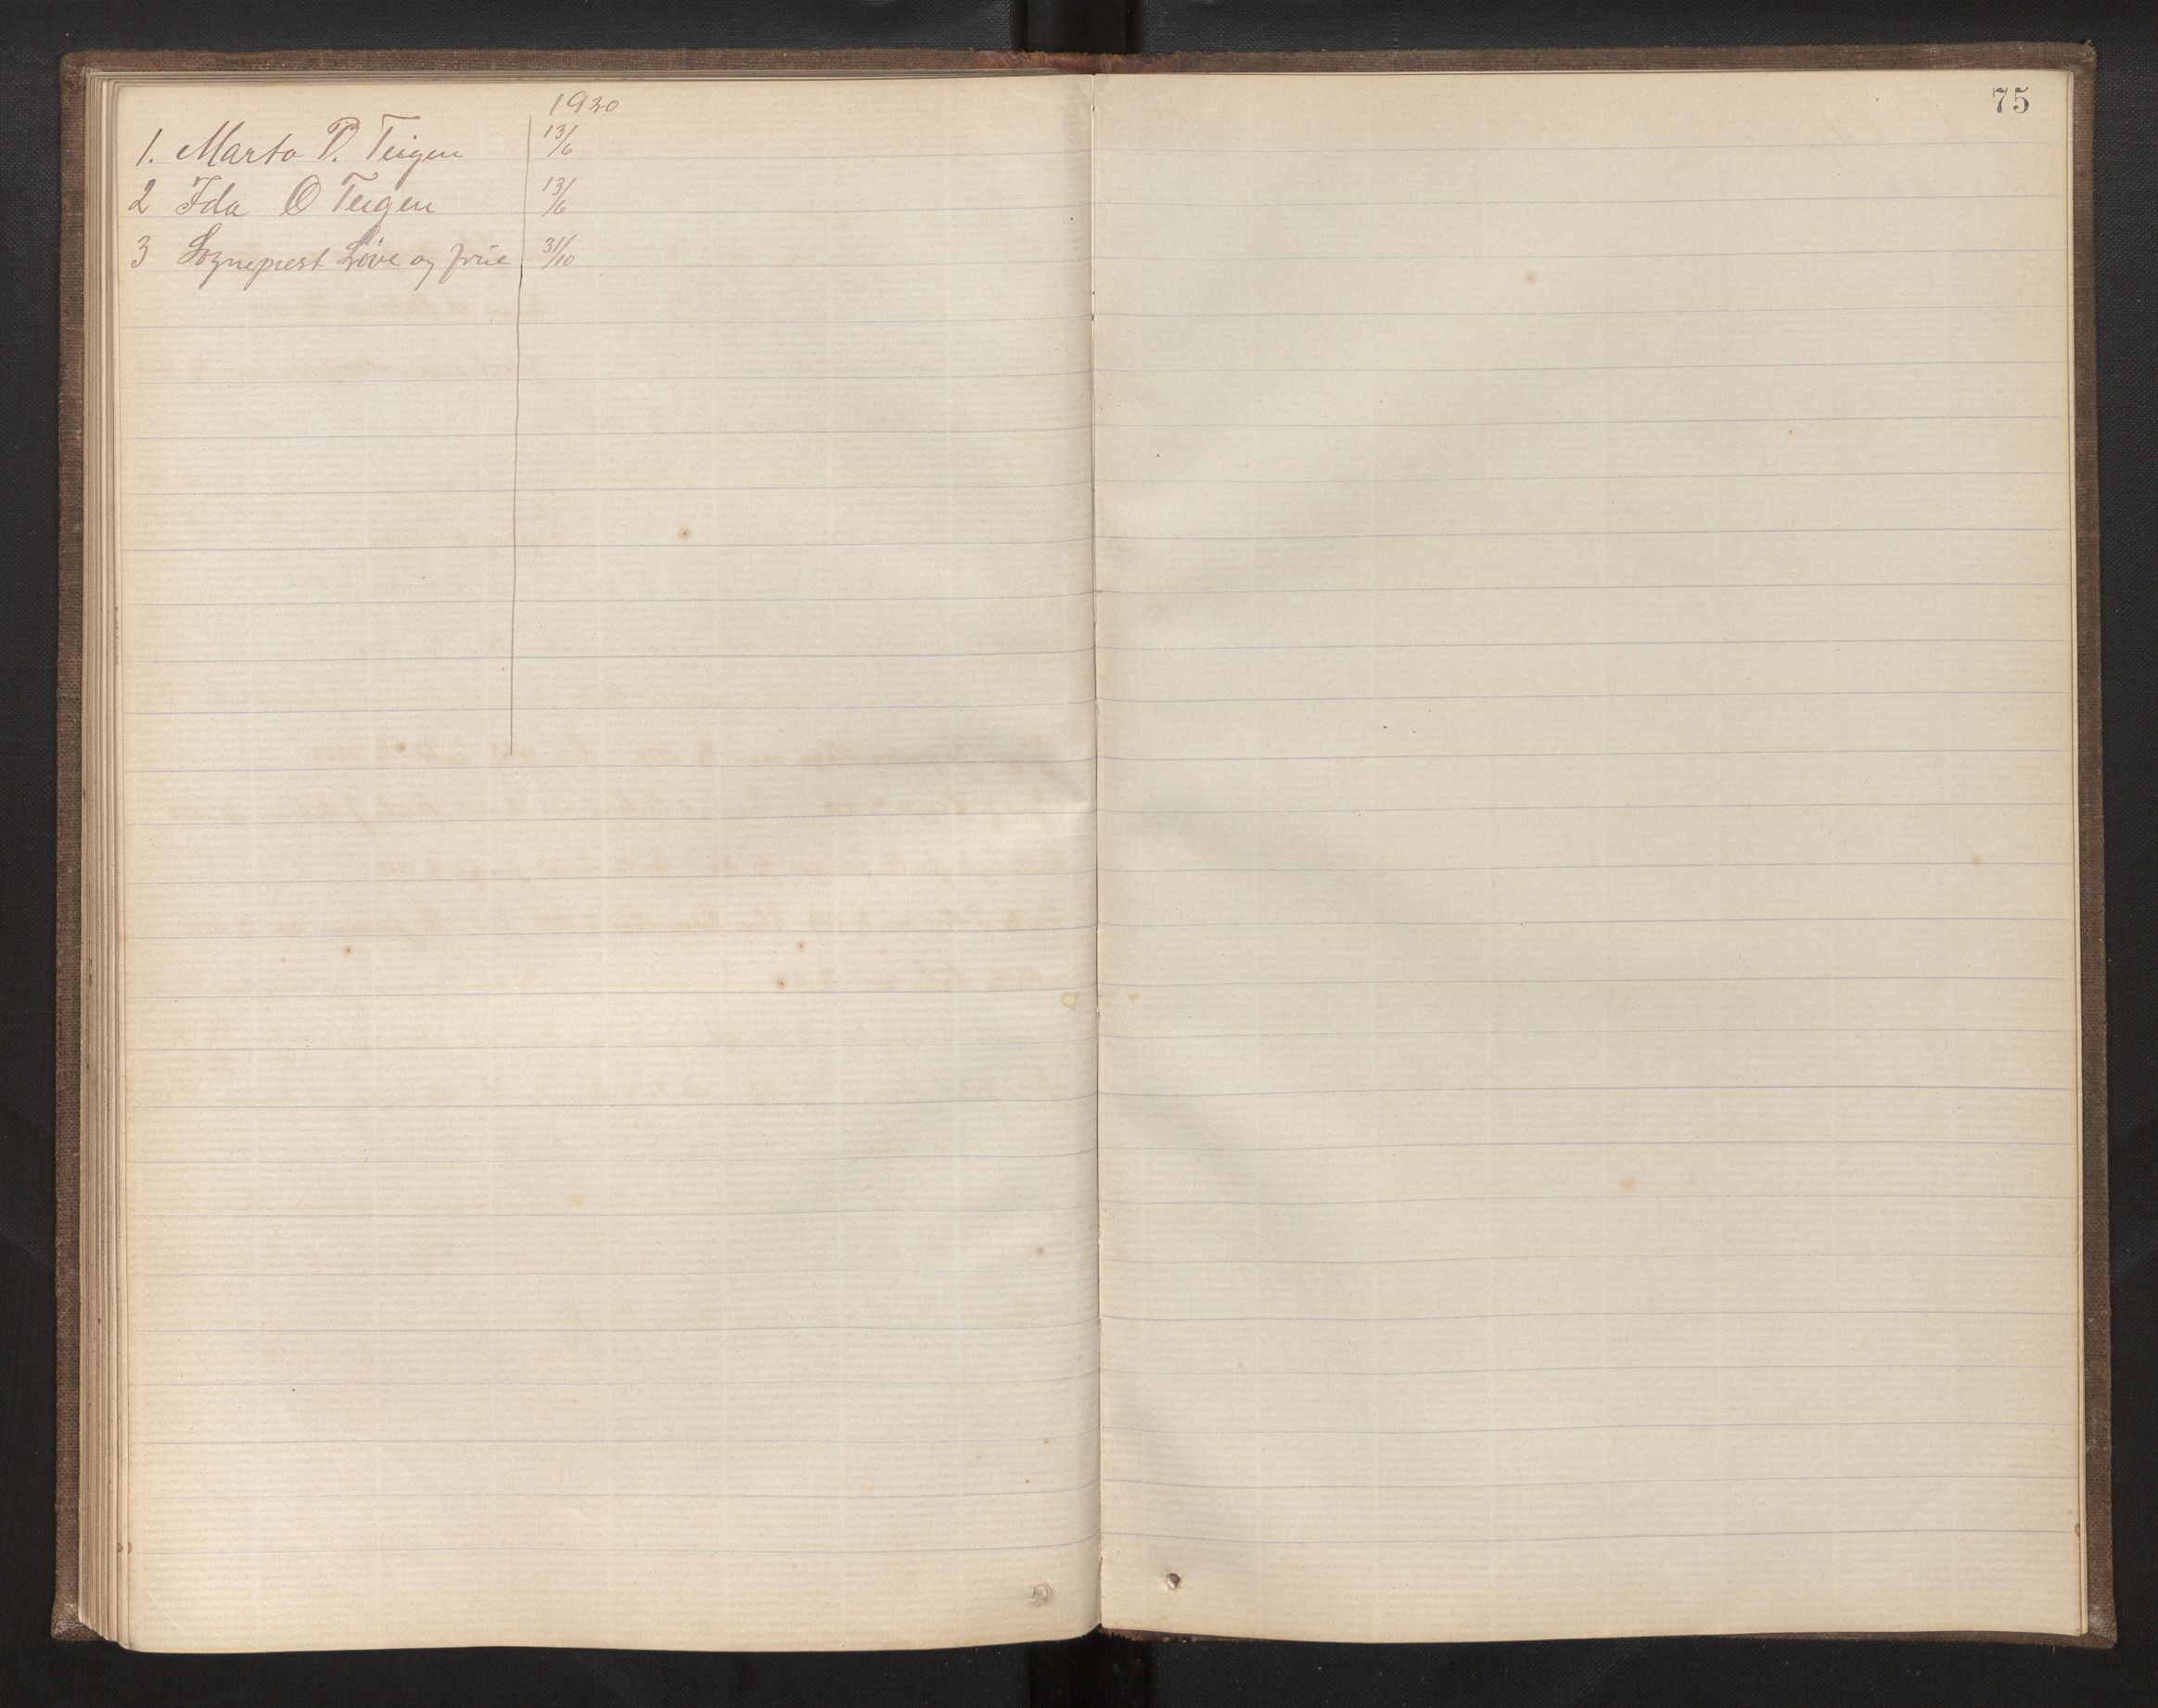 1920
1. Marta P. Teigen 13/6
2 Ida O Teigen 13/6
3 Sogneprest Løve og frue 31/10
75